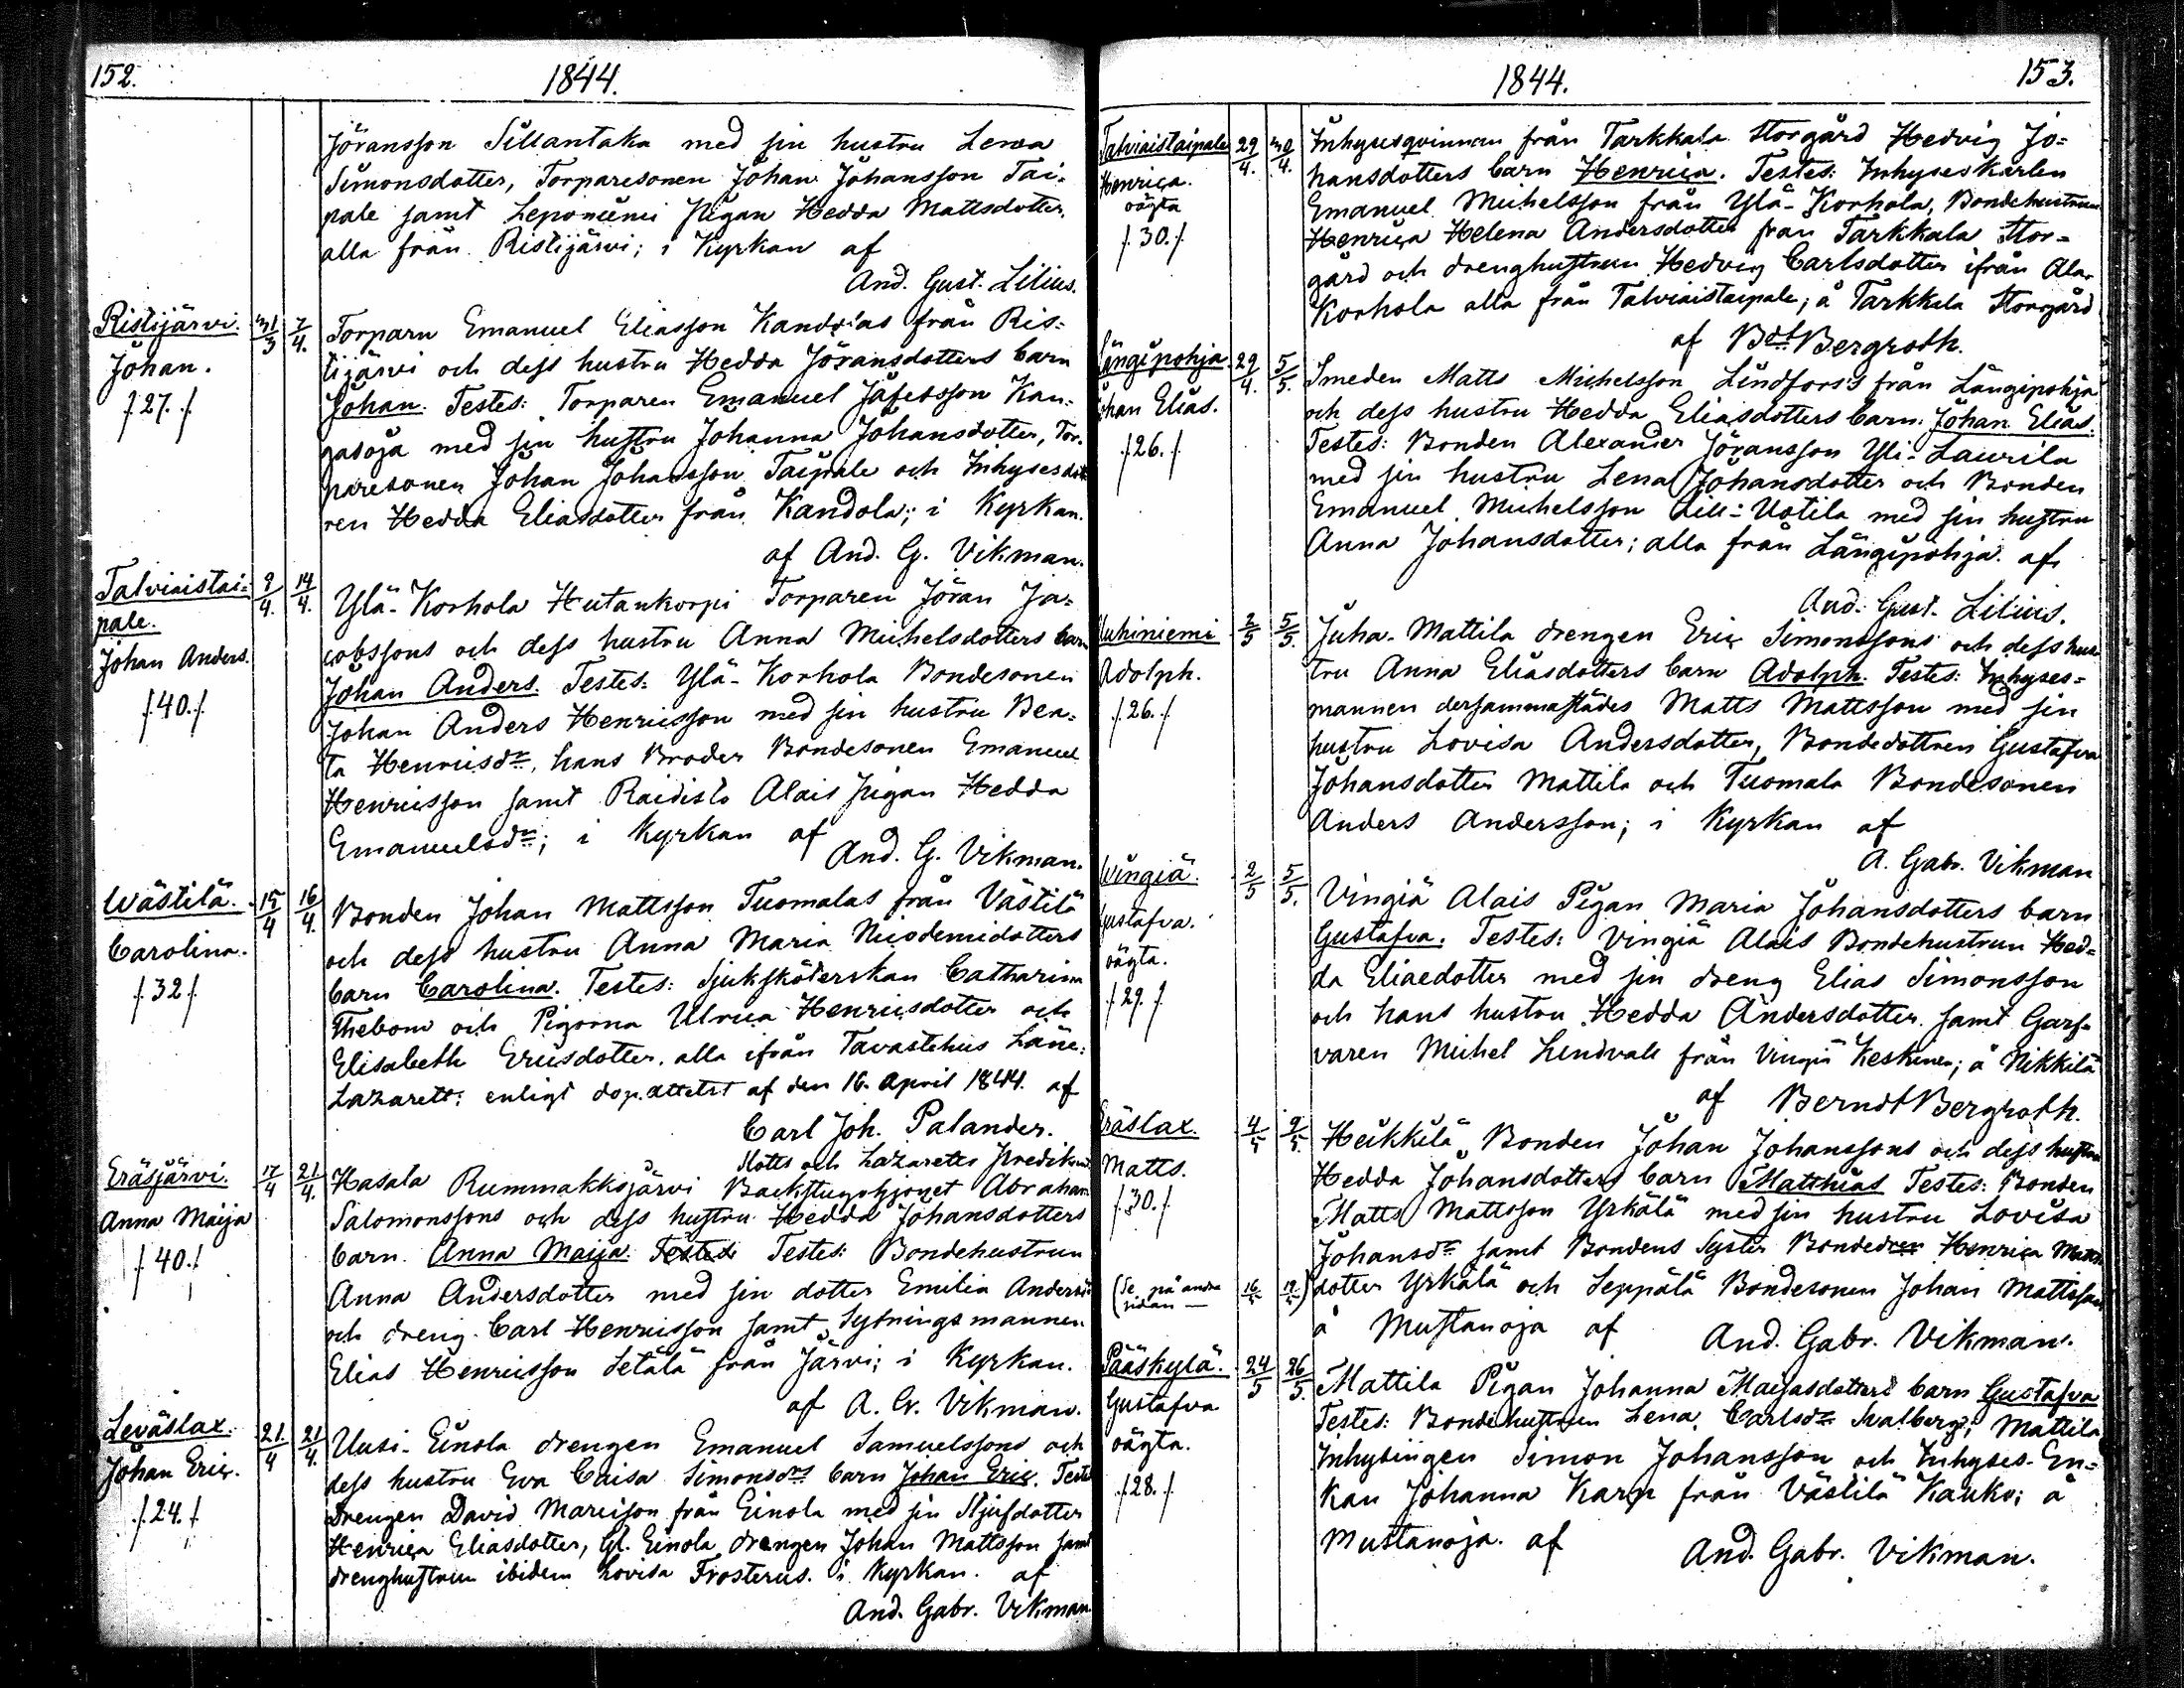 152.
1844.
Jöransson Sillantaka med sin hustru Lena
Simonsdotter, Torparesonen Johan Johansson Tai=
pale samt Leponiemi Pigan Hedda Mattsdotter,
alla från Ristijärvi; i Kyrkan af
And. Gust. Lilius.
Ristijärvi. 31/3 7/4. Torparn Emanuel Eliasson Kandolas från Ris=
Johan. tijärvi och dess hustru Hedda Jöransdotters barn
f 27. f Johan. Testes: Torparen Emanuel Jafetsson Kan=
gasoja med sin hustru Johanna Johansdotter, Tor=
paresonen Johan Johansson Taipale och Inhysesdott
ren Hedda Eliasdotter från Kandola; i Kyrkan.
af And. G. Vikman.
Talviaistai= 9/4. 14/4. Ylä-Korhola Hutankorpi Torparen Jöran Ja=
pale. cobssons och dess hustru Anna Michelsdotters barn
Johan Anders. Johan Anders. Testes: Ylä-Korhola Bondesonen
f 40. f Johan Anders Henricsson med sin hustru Bea=
ta Henricsdr, hans Broder Bondesonen Emanuel
Henricsson samt Raidisto Alais Pigan Hedda
Emanuelsdr; i Kyrkan af
And. G. Vikman.
Wästilä. 15/4 16/4. Bonden Johan Mattsson Tuomalas från Västilä
Carolina. och dess hustru Anna Maria Nicodemidotters
f 32 f barn Carolina. Testes: Sjuksköterskan Catharina
Thebom och Pigorna Ulrica Henricsdotter och
Elisabeth Ericsdotter. alla ifrån Tavastehus Läne=
Lazarett: enligt dop.attest af den 16. April 1844. af
Carl Joh. Palander.
Slotts och Lazaretts Predikant
Eräsjärvi. 17/4 21/4. Hasala Rummakksjärvi Backstugohjonet Abraham
Anna Maija Salomonssons och dess hustru Hedda Johansdotters
f 40. f barn Anna Maija. Testes Testes: Bondehustrun
Anna Andersdotter med sin dotter Emilia Andersd
och dreng Carl Henricsson samt Sytningsmannen
Elias Henricsson Setälä från Järvi; i Kyrkan.
af A. G. Vikman.
Leväslax. 21/4 21/4. Uusi-Einola drengen Emanuel Samuelssons och
Johan Eric. dess hustru Eva Caisa Simonsdrs barn Johan Eric. Testes
f 24. f Drengen David Marcisson från Einola med sin Stjufdotter
Henrica Eliasdotter, Gl. Einola drengen Johan Mattsson samt
drenghustrun ibidem Lovisa Frosterus. i Kyrkan. af
And. Gabr. Vikman.
1844.
153.
Talviaistaipale 29/4. 30/4. Inhysesqvinnan från Tarkkala Storgård Hedvig Jo=
Henrica. hansdotters barn Henrica. Testes: Inhyseskarlen
oägta Emanuel Michelsson från Ylä-Korhola, Bondehustrun
f 30. f Henrica Helena Andersdotter från Tarkkala Stor=
gård och drenghustrun Hedvig Carlsdotter ifrån Ala-
Korhola alla från Talviaistaipale; å Tarkkala Storgård
af Bdt Bergroth.
Längipohja 29/4. 5/5. Smeden Matts Michelsson Lindfors's från Längipohja
Johan Elias. och dess hustru Hedda Eliasdotters barn: Johan Elias.
f 26. f Testes: Bonden Alexander Jöransson Yli-Laurila
med sin hustru Lena Johansdotter och Bonden
Emanuel Michelsson Lill-Uotila med sin hustru
Anna Johansdotter; alla från Längipohja. af
And. Gust. Lilius.
Uuhiniemi 2/5 5/5. Juha-Mattila drengen Eric Simonssons och dess hus
Adolph. tru Anna Eliasdotters barn Adolph. Testes: Inhyses=
f 26. f mannen dersammastädes Matts Mattsson med sin
hustru Lovisa Andersdotter, Bondedottren Gustafva
Johansdotter Mattila och Tuomala Bondesonen
Anders Andersson; i Kyrkan af
A. Gabr. Vikman
Wingiä. 2/5 5/5. Vingiä Alais Pigan Maria Johansdotters barn
Gustafva. Gustafva. Testes: Vingiä Alais Bondehustrun Hed=
oägta. da Eliaedotter med sin dreng Elias Simonsson
f 29. f och hans hustru Hedda Andersdotter samt Garf=
varen Michel Lindvall från Vingiä Keskinen; å Nikkilä
af Berndt Bergroth.
Eräslax. 4/5 9/5. Heikkilä Bonden Johan Johanssons och dess hustru
Matts. Hedda Johansdotters barn Matthias Testes: Bonden
f 30. f Matts Mattsson Yrkälä med sin hustru Lovisa
Johansdr samt Bondens Syster Bondedren Henrica Matts
(Se på andra sidan — 16/5 19/5) dotter Yrkälä och Seppälä Bondesonen Johan Mattsson
å Mustanoja af And. Gabr. Vikman.
Pääskylä. 24/5 26/5. Mattila Pigan Johanna Maijasdotters barn Gustafva
Gustafva Testes: Bondehustrun Lena Carlsdr Svalberg, Mattila
oägta. Inhysingen Simon Johansson och Inhyses-En=
f 28. f kan Johanna Karp från Västilä Kauko; å
Mustanoja. af And. Gabr. Vikman.